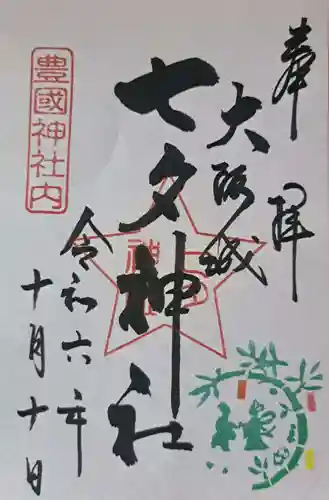 奉拝
大阪城
七夕神社
豊國神社内
令和六年
十月十日